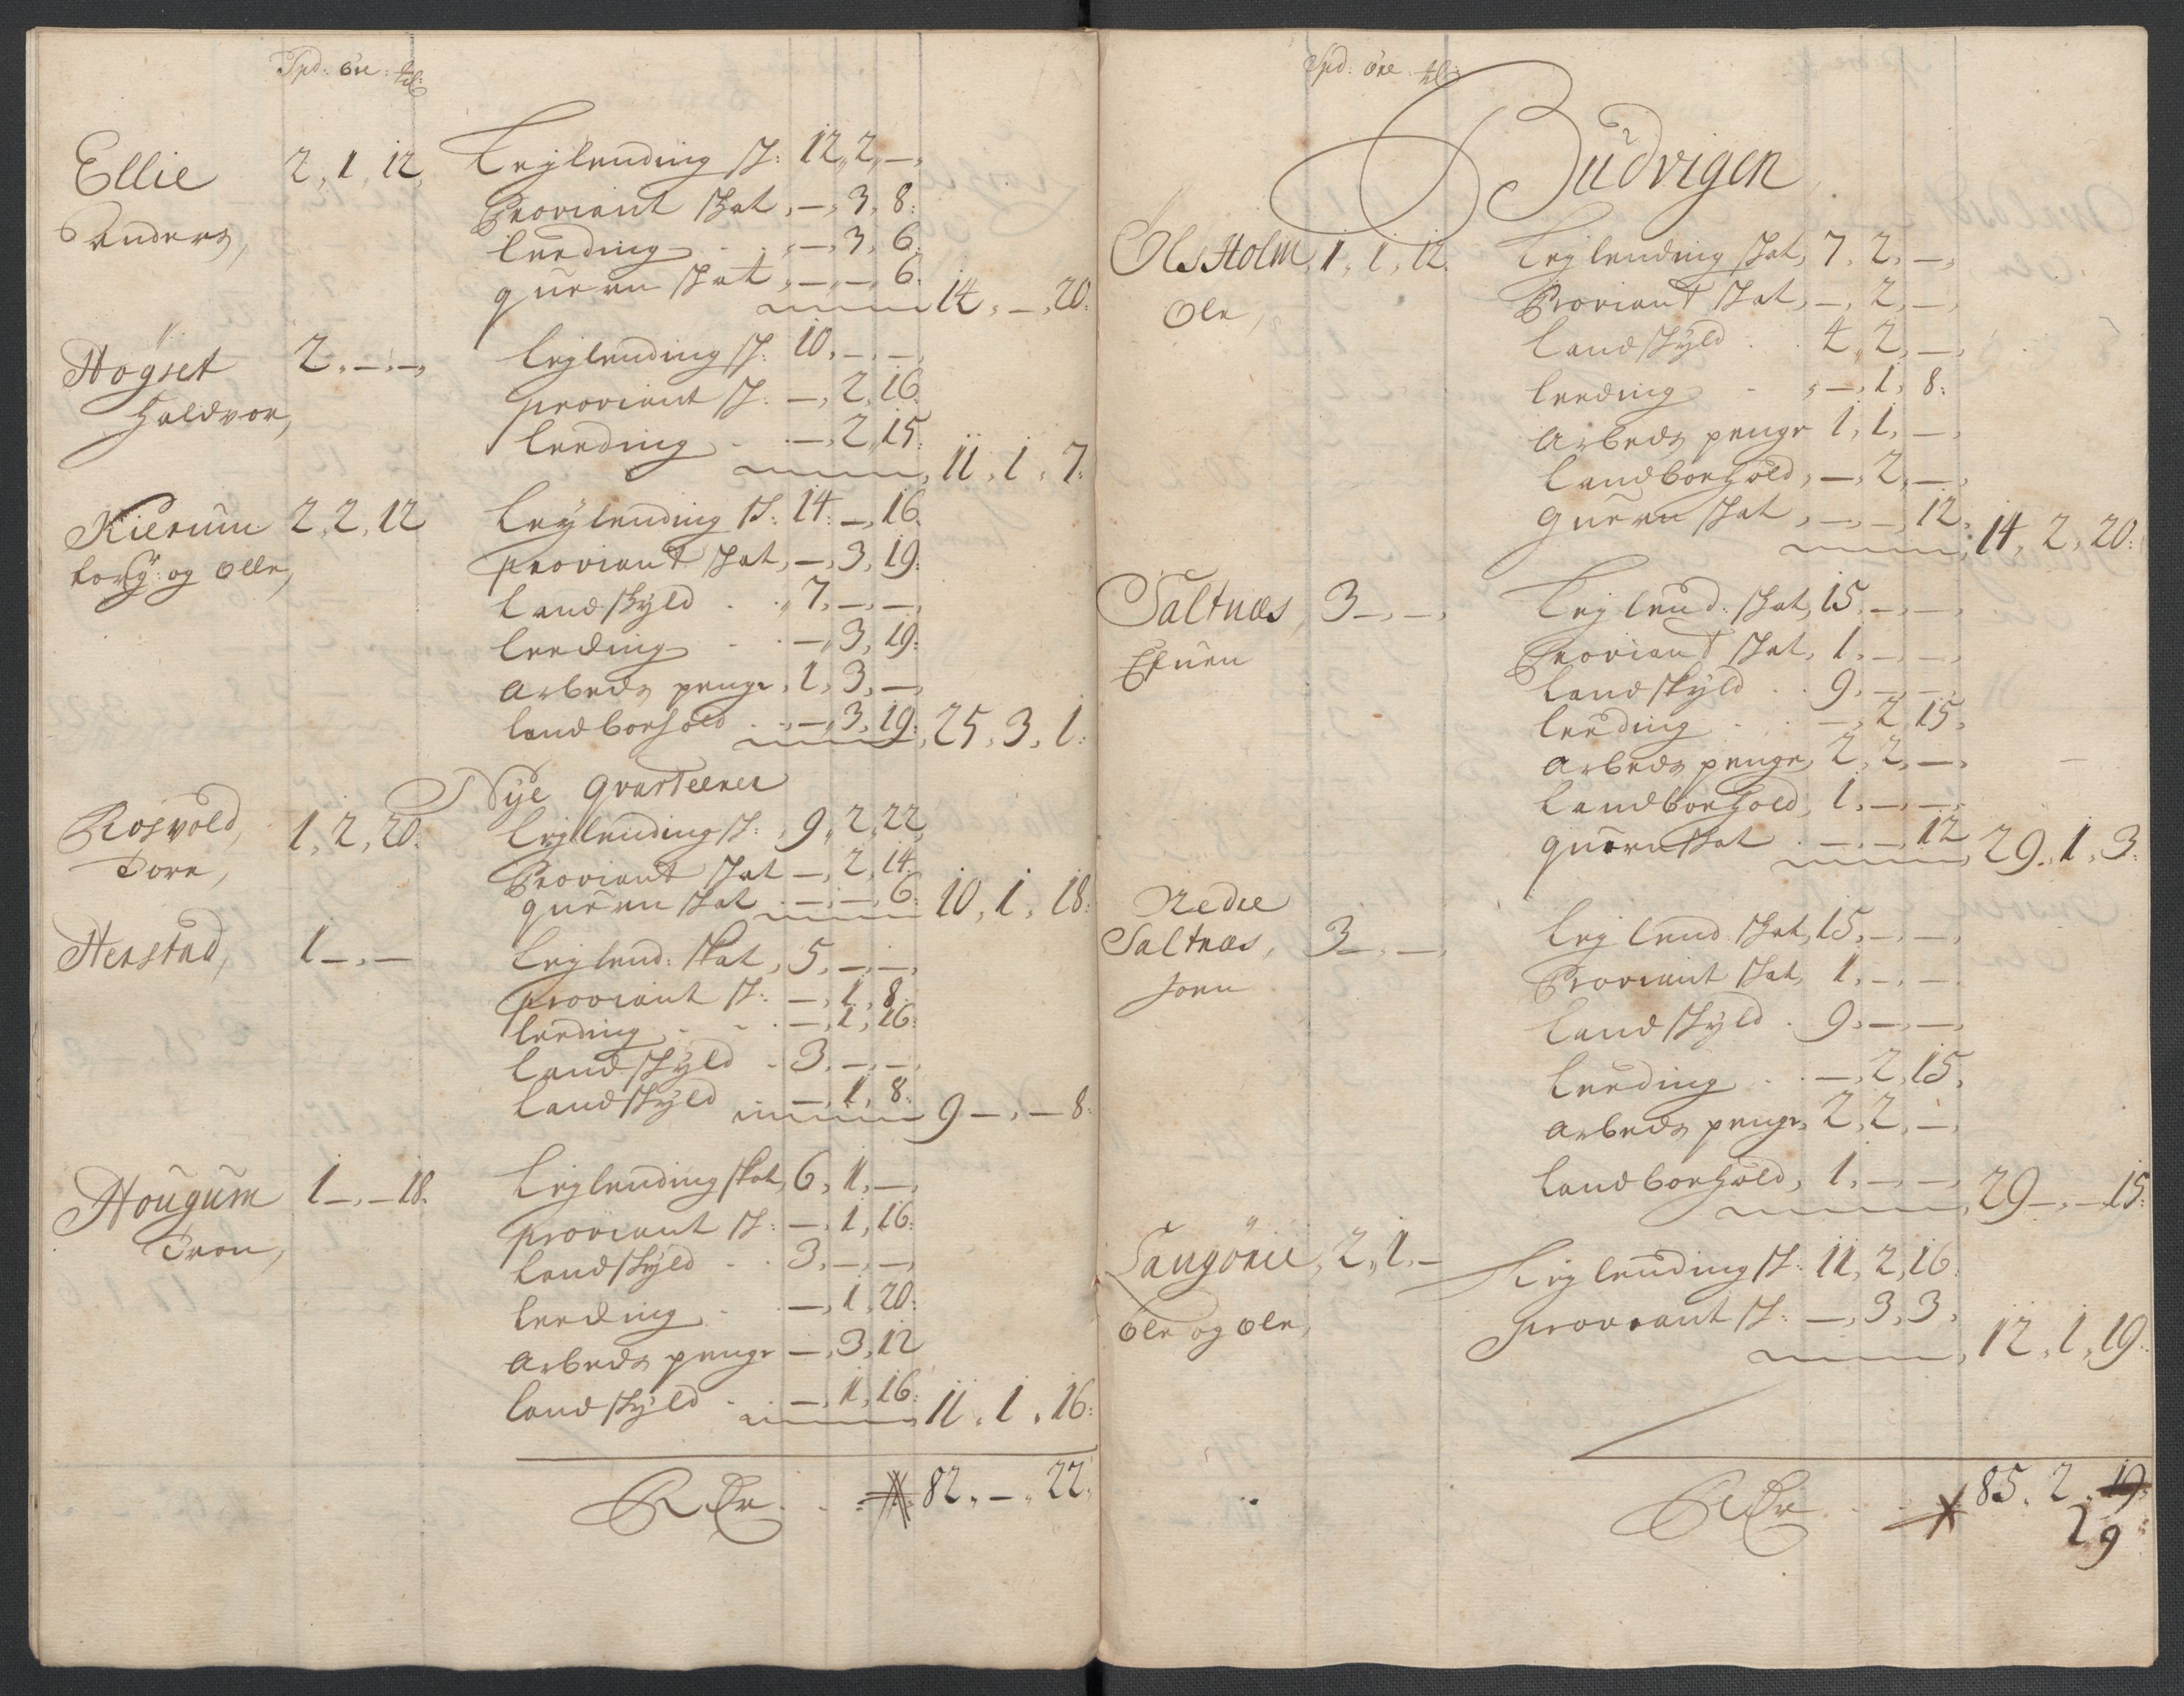 Spd: öre: ℔
Ellie 2, 1, 12, Leylending sk: 12, 2, —,
Proviant skat, —, 3, 8:
Anders, Leeding . . —, 3, 6:
quern skat, —, —, 6:
14, —, 20:
Högset 2, —, —, leylending sk: 10, —, —,
proviant sk: —, 2, 16:
Haldvor, leeding . —, 2, 15:
11, 1, 7:
Kierum 2, 2, 12 Leylending sk: 14: —, 16.
Proviant skat, —, 3, 19:
og olle, Landskyld . . 7, —, —,
Leeding . . —, 3, 19:
Arbeds penge, 1, 3, —,
landborhold . . —, 3, 19: 25, 3, 1:
Nye qvarteerer
Rosvold, 1, 2, 20: leylending sk: 9, 2, 22,
Tore, Proviant skat —, 2, 14:
quern skat . —, —, 6: 10, 1, 18:
Henstad, 1 —, — Leylend: skat, 5, —, —,
proviant sk: —, 1, 8:
leeding . . —, 1, 16:
Landskyld . 3, —, —,
Landskyld . —, 1, 8: 9 —, — 8:
Hougum 1 —, — 18. Leylending skat, 6, 1, —,
proviant sk: —, 1, 16:
Tron, Landskyld . . 3, —, —,
leeding . . —, 1, 20:
Arbeds penge —, 3, 12
landskyld . . —, 1, 16: 11, 1, 16:
82, —, 22,
Spd: öre: ℔
Büdvigen
Ols Holm, 1, 1, 12. Leylending skat, 7, 2, —,
Ole, Proviant skat, —, 2, —,
Landskyld . . 4, 2, —,
leeding . , —, 1, 8:
Arbeds penge 1, 1, —,
Landborhold, —, 2, —,
quern skat, —, —, 12,
14, 2, 20:
Saltnæs, 3 —, —, Leylend: skat, 15, —, —,
Proviant skat, 1, —, —,
Efuen landskyld . . 9, —, —,
leeding . . —, 2, 15,
Arbeds penge, 2, 2, —,
Landborhold, 1, —, —,
quern skat . —, —, 12
29, 1, 3:
Nedre
Saltnæs, 3 —, —, Leylend: skat, 15, —, —,
Joen Proviant skat, 1, —, —
Landskyld . 9, —, —,
Leeding . . —, 2, 15,
Arbeds penge, 2, 2, —,
landborhold, 1, —, —,
29 —, — 15:
Sangörie, 2, 1, — Leylending sk: 11, 2, 16:
Ole og Ole, proviant sk: —, 3, 3,
12, 1, 19:
85, 2, 19:
29: